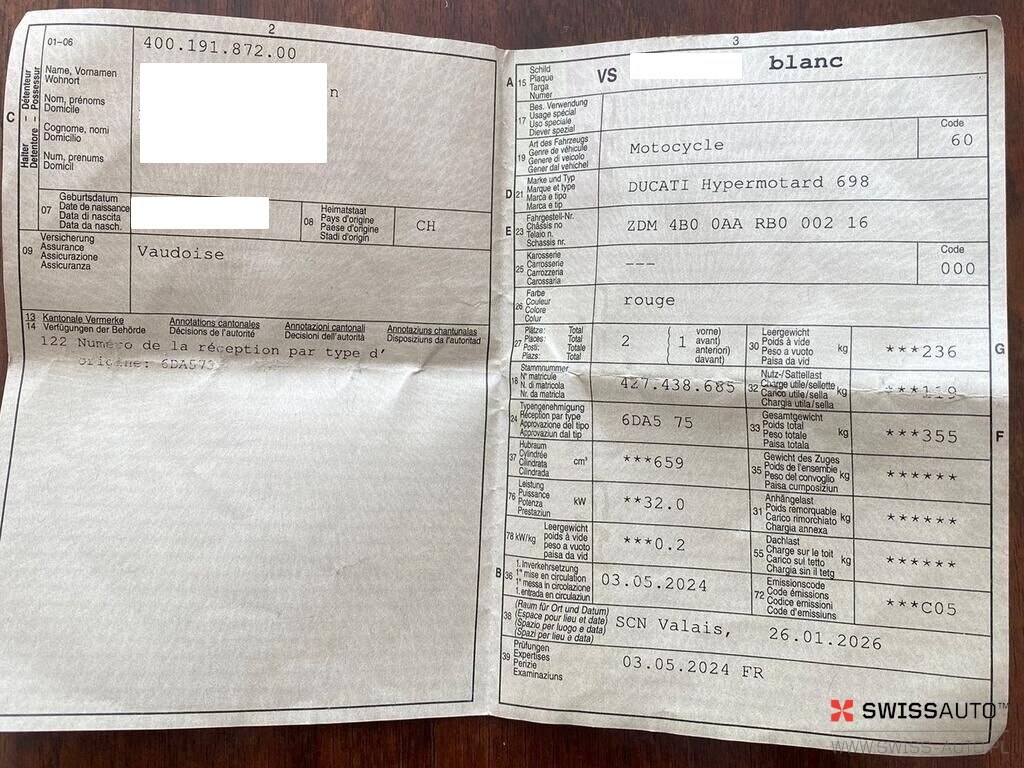 2
01-06
400.191.872.00
C
Halter – Détenteur
Detentore – Possessur
Name, Vornamen
Wohnort
Nom, prénoms
Domicile
Cognome, nomi
Domicilio
Num, prenums
Domicil
n
07
Geburtsdatum
Date de naissance
Data di nascita
Data da nasch.
08
Heimatstaat
Pays d'origine
Paese d'origine
Stadi d'origin
CH
09
Versicherung
Assurance
Assicurazione
Assicuranza
Vaudoise
13 Kantonale Vermerke Annotations cantonales Annotazioni cantonali Annotaziuns chantunalas
14 Verfügungen der Behörde Décisions de l'autorité Decisioni dell'autorità Disposiziuns da l'autoritad
122 Numéro de la réception par type d'
origine: 6DA573
3
A 15
Schild
Plaque
Targa
Numer
VS
blanc
17
Bes. Verwendung
Usage spécial
Uso speciale
Diever spezial
19
Art des Fahrzeugs
Genre de véhicule
Genere di veicolo
Gener dal vehichel
Motocycle
Code
60
D 21
Marke und Typ
Marque et type
Marca e tipo
Marca e tip
DUCATI Hypermotard 698
E 23
Fahrgestell-Nr.
Châssis no
Telaio n.
Schassis nr.
ZDM 4B0 0AA RB0 002 16
25
Karosserie
Carrosserie
Carrozzeria
Carossaria
---
Code
000
26
Farbe
Couleur
Colore
Colur
rouge
27
Plätze: Total
Places: Total
Posti: Totale
Plazs: Total
2
( 1
vorne)
avant)
anteriori)
davant)
30
Leergewicht
Poids à vide
Peso a vuoto
Paisa da vid
kg
***236
G
18
Stammnummer
N° matricule
N. di matricola
Nr. da matricla
427.438.685
32
Nutz-/Sattellast
Charge utile/sellette
Carico utile/sella
Chargia utila/sella
kg
***119
24
Typengenehmigung
Réception par type
Approvazione del tipo
Approvaziun dal tip
6DA5 75
33
Gesamtgewicht
Poids total
Peso totale
Paisa totala
kg
***355
F
37
Hubraum
Cylindrée
Cilindrata
Cilindrada
cm³
***659
35
Gewicht des Zuges
Poids de l'ensemble
Peso del convoglio
Paisa cumposiziun
kg
******
76
Leistung
Puissance
Potenza
Prestaziun
kW
**32.0
31
Anhängelast
Poids remorquable
Carico rimorchiato
Chargia annexa
kg
******
78 kW/kg
Leergewicht
poids à vide
peso a vuoto
paisa da vid
***0.2
55
Dachlast
Charge sur le toit
Carico sul tetto
Chargia sin il tetg
kg
******
B 36
1. Inverkehrsetzung
1re mise en circulation
1a messa in circolazione
1. entrada en circulaziun
03.05.2024
72
Emissionscode
Code émissions
Codice emissioni
Code d'emissiuns
***C05
38
(Raum für Ort und Datum)
(Espace pour lieu et date)
(Spazio per luogo e data)
(Spazi per lieu e data)
SCN Valais, 26.01.2026
39
Prüfungen
Expertises
Perizie
Examinaziuns
03.05.2024 FR
SWISSAUTO™
WWW.SWISS-AUTO.PL